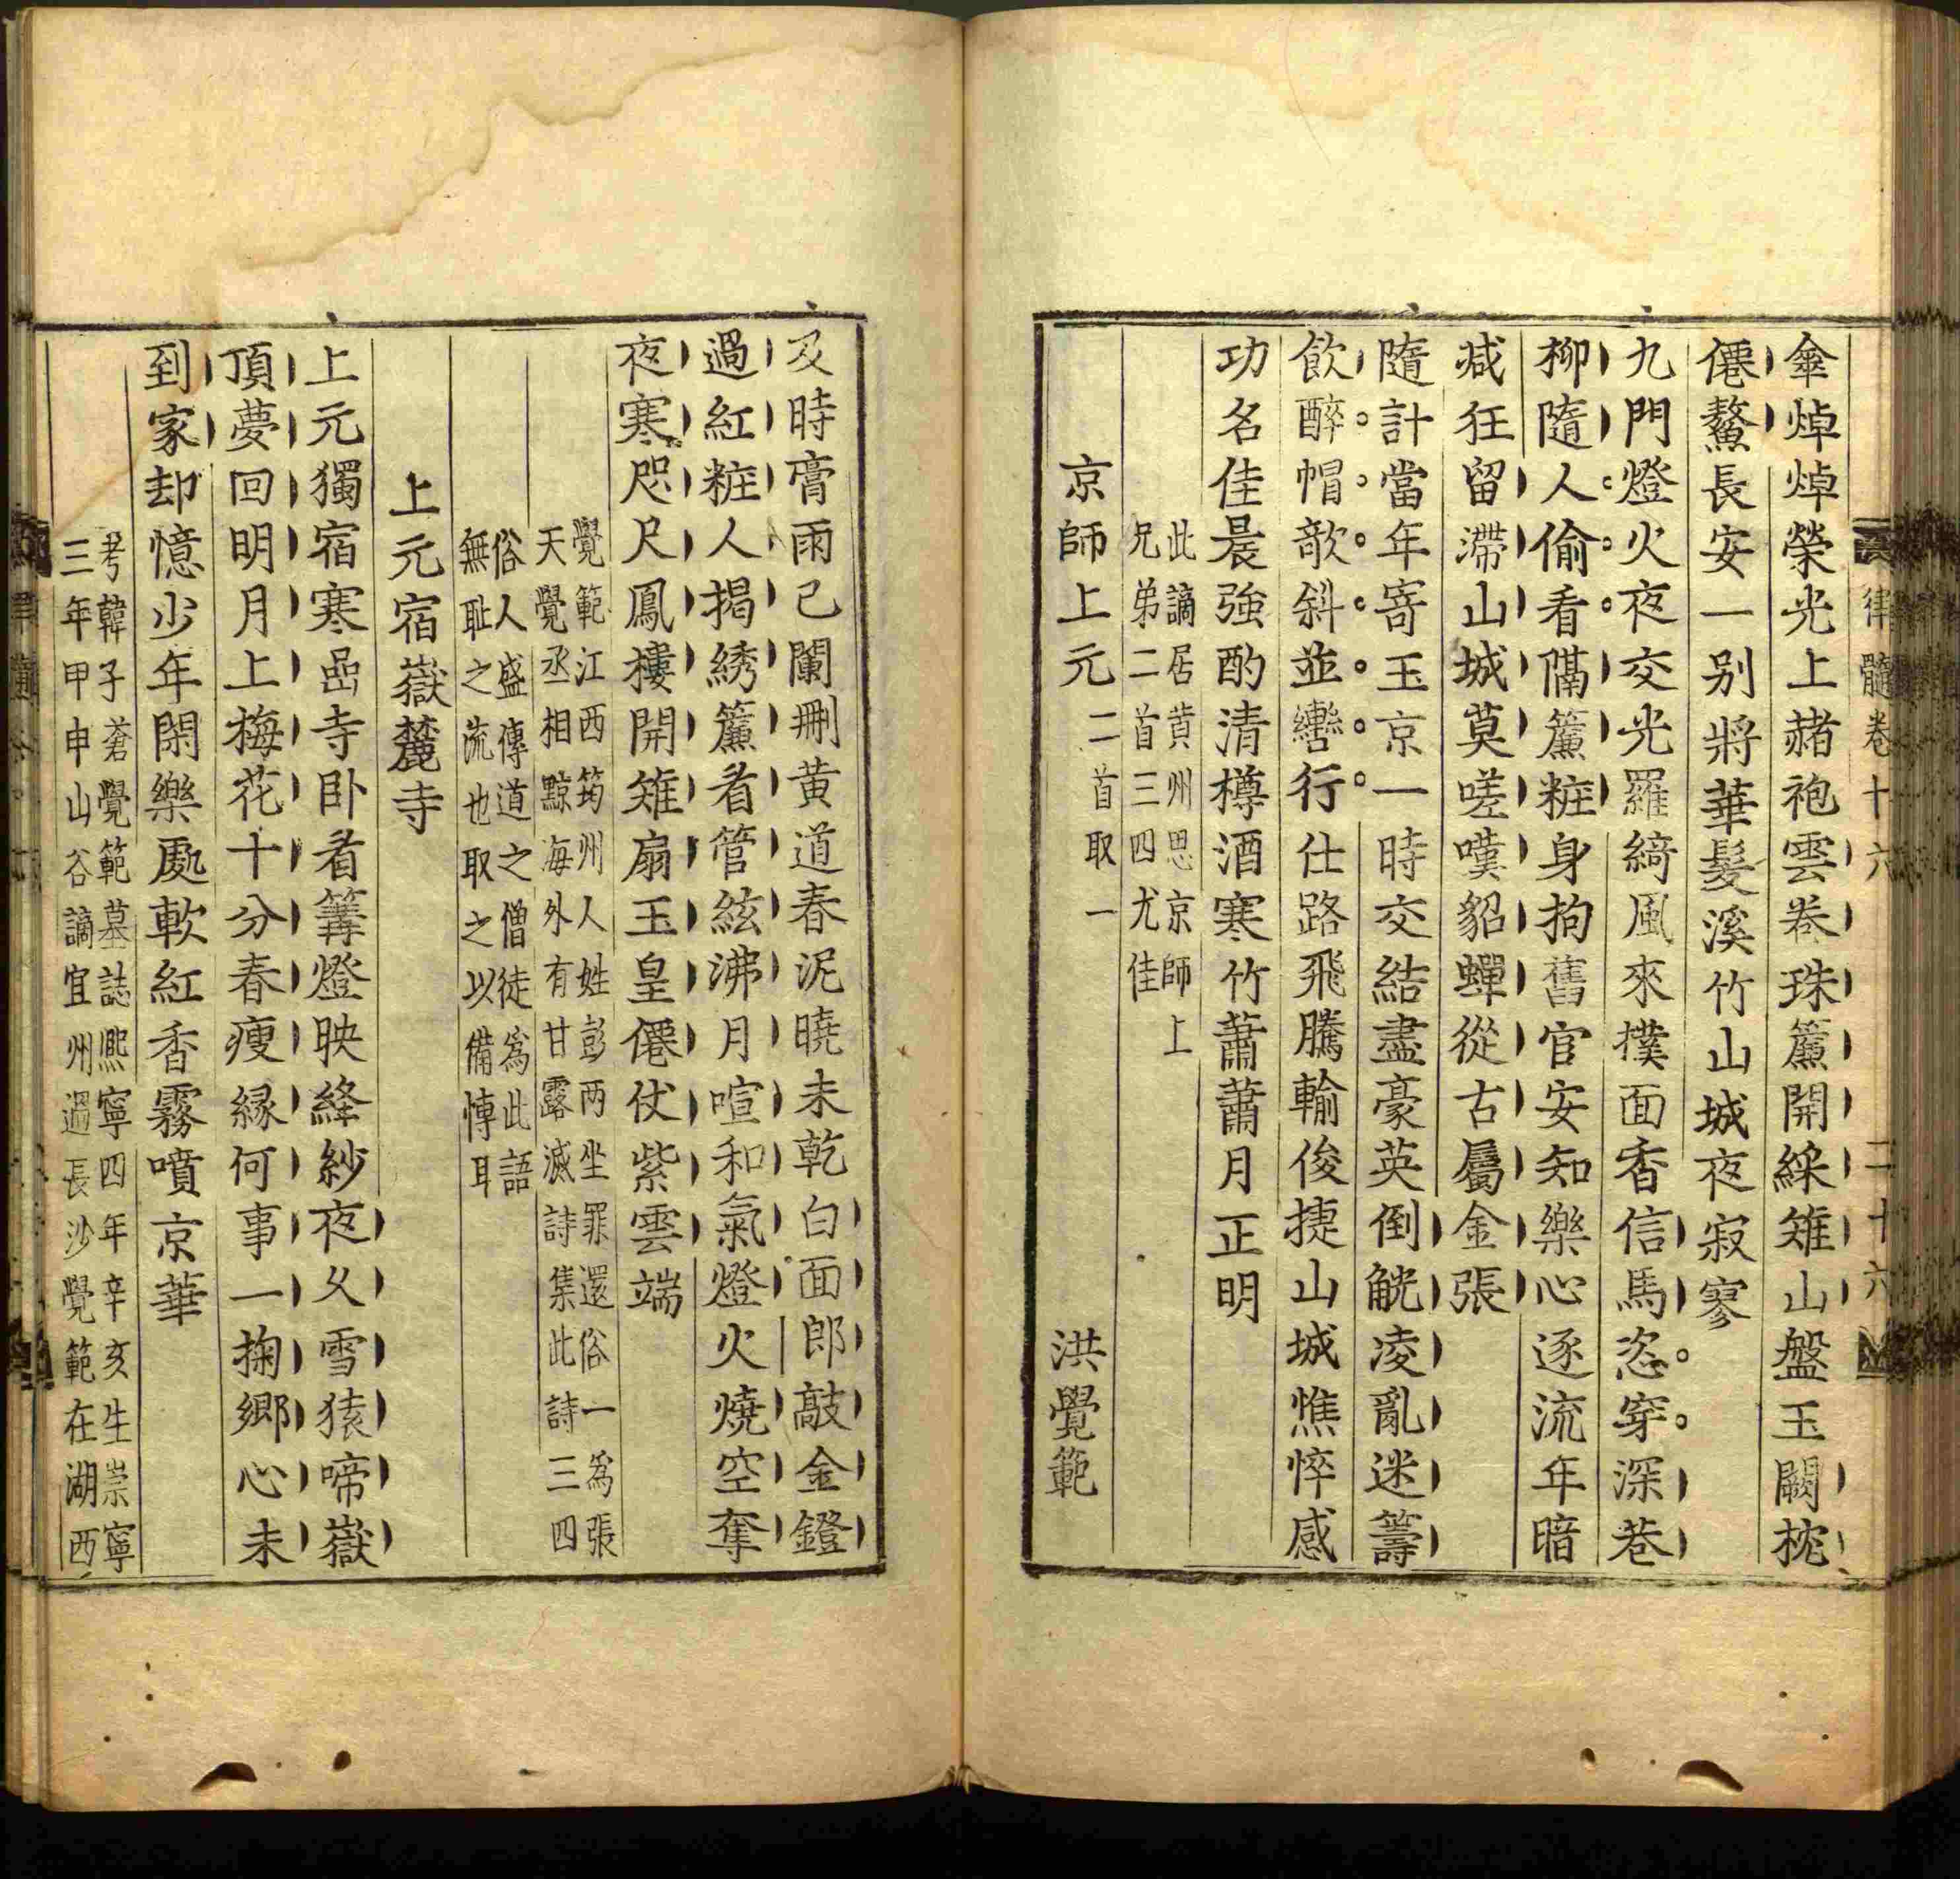 律髓卷十六 二十六
傘焯焯榮光上赭袍雲卷珠簾開綵雉山盤玉闕枕
僊鰲長安一别將華髮溪竹山城夜寂寥
九門燈火夜交光羅綺風來撲面香信馬恣穿深巷
柳隨人偷看隔簾粧身拘舊官安知樂心逐流年暗
减狂留滯山城莫嗟嘆貂蟬從古屬金張
隨計當年寄玉京一時交結盡豪英倒觥凌亂迷籌
飲醉帽欹斜並轡行仕路飛騰輸俊捷山城憔悴感
功名佳晨強酌清樽酒寒竹蕭蕭月正明
此謫居黄州思京師上
兄弟二首三四尤佳
京師上元二首取一 洪覺範
及時膏雨已闌刪黄道春泥曉未乾白面郎敲金鐙
過紅粧人揭綉簾看管絃沸月喧和氣燈火燒空奪
夜寒咫尺鳳樓開雉扇玉皇僊仗紫雲端
覺範江西筠州人姓彭两坐罪還俗一爲張
天覺丞相黥海外有甘露滅詩集此詩三四
俗人盛傳道之僧徒爲此語
無耻之流也取之以備博耳
上元宿嶽麓寺
上元獨宿寒嵒寺卧看篝燈映絳紗夜久雪猿啼嶽
頂夢回明月上梅花十分春瘦緣何事一掬鄉心未
到家却憶少年閑樂處軟紅香霧噴京華
考韓子蒼覺範墓誌熈寧四年辛亥生崇寧
三年甲申山谷謫宜州過長沙覺範在湖西